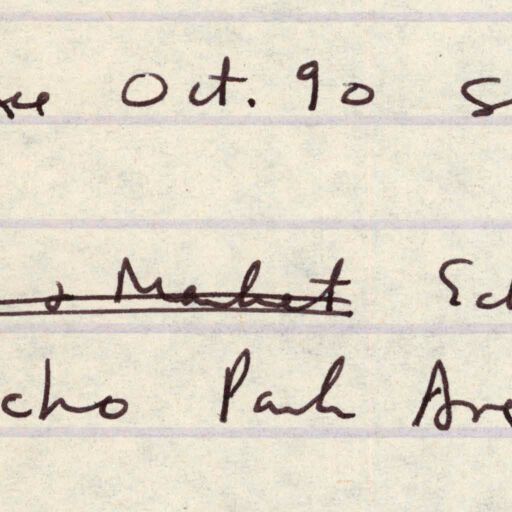 Oct. 90 S
& Market Ech
cho Park Ave